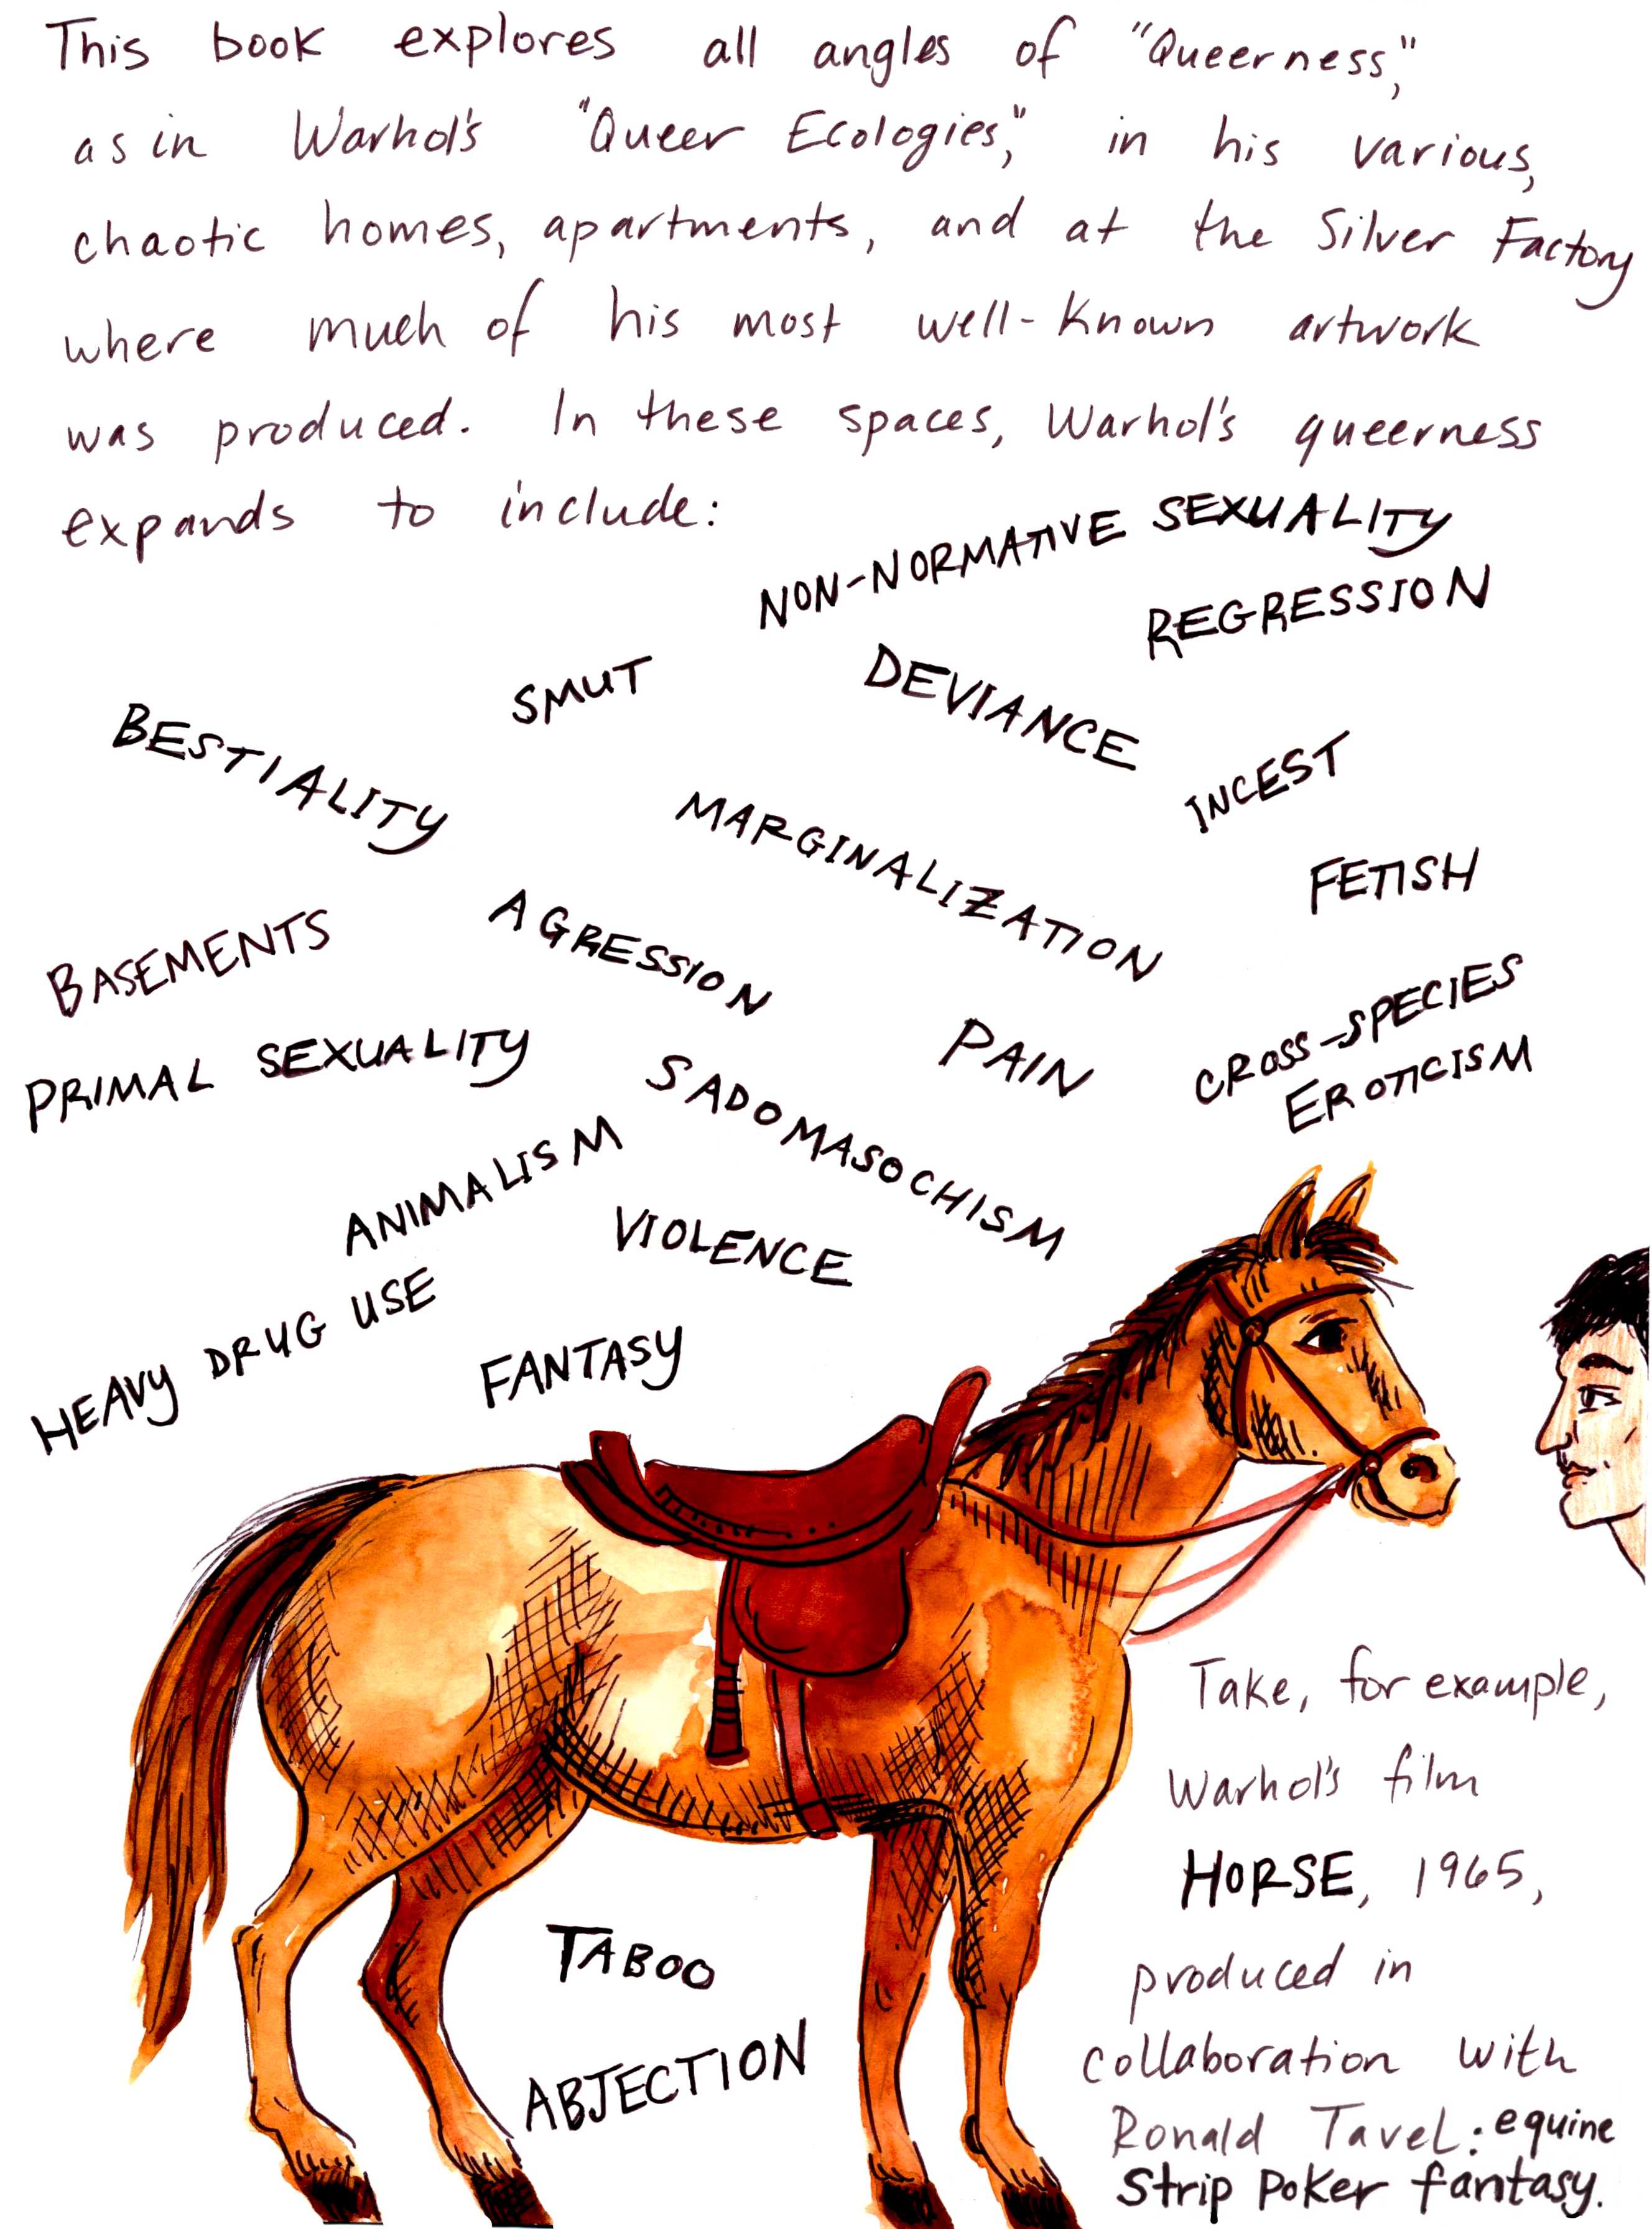 This book explores all angles of "Queerness,"
as in Warhol's "Queer Ecologies," in his various,
chaotic homes, apartments, and at the Silver Factory
where much of his most well-known artwork
was produced. In these spaces, Warhol's queerness
expands to include:
NON-NORMATIVE SEXUALITY
REGRESSION
SMUT
DEVIANCE
BESTIALITY
INCEST
MARGINALIZATION
FETISH
BASEMENTS
AGRESSION
CROSS-SPECIES
EROTICISM
PRIMAL SEXUALITY
PAIN
SADOMASOCHISM
ANIMALISM
VIOLENCE
HEAVY DRUG USE
FANTASY
Take, for example,
Warhol's film
HORSE, 1965,
produced in
collaboration with
Ronald Tavel: equine
Strip Poker fantasy.
TABOO
ABJECTION